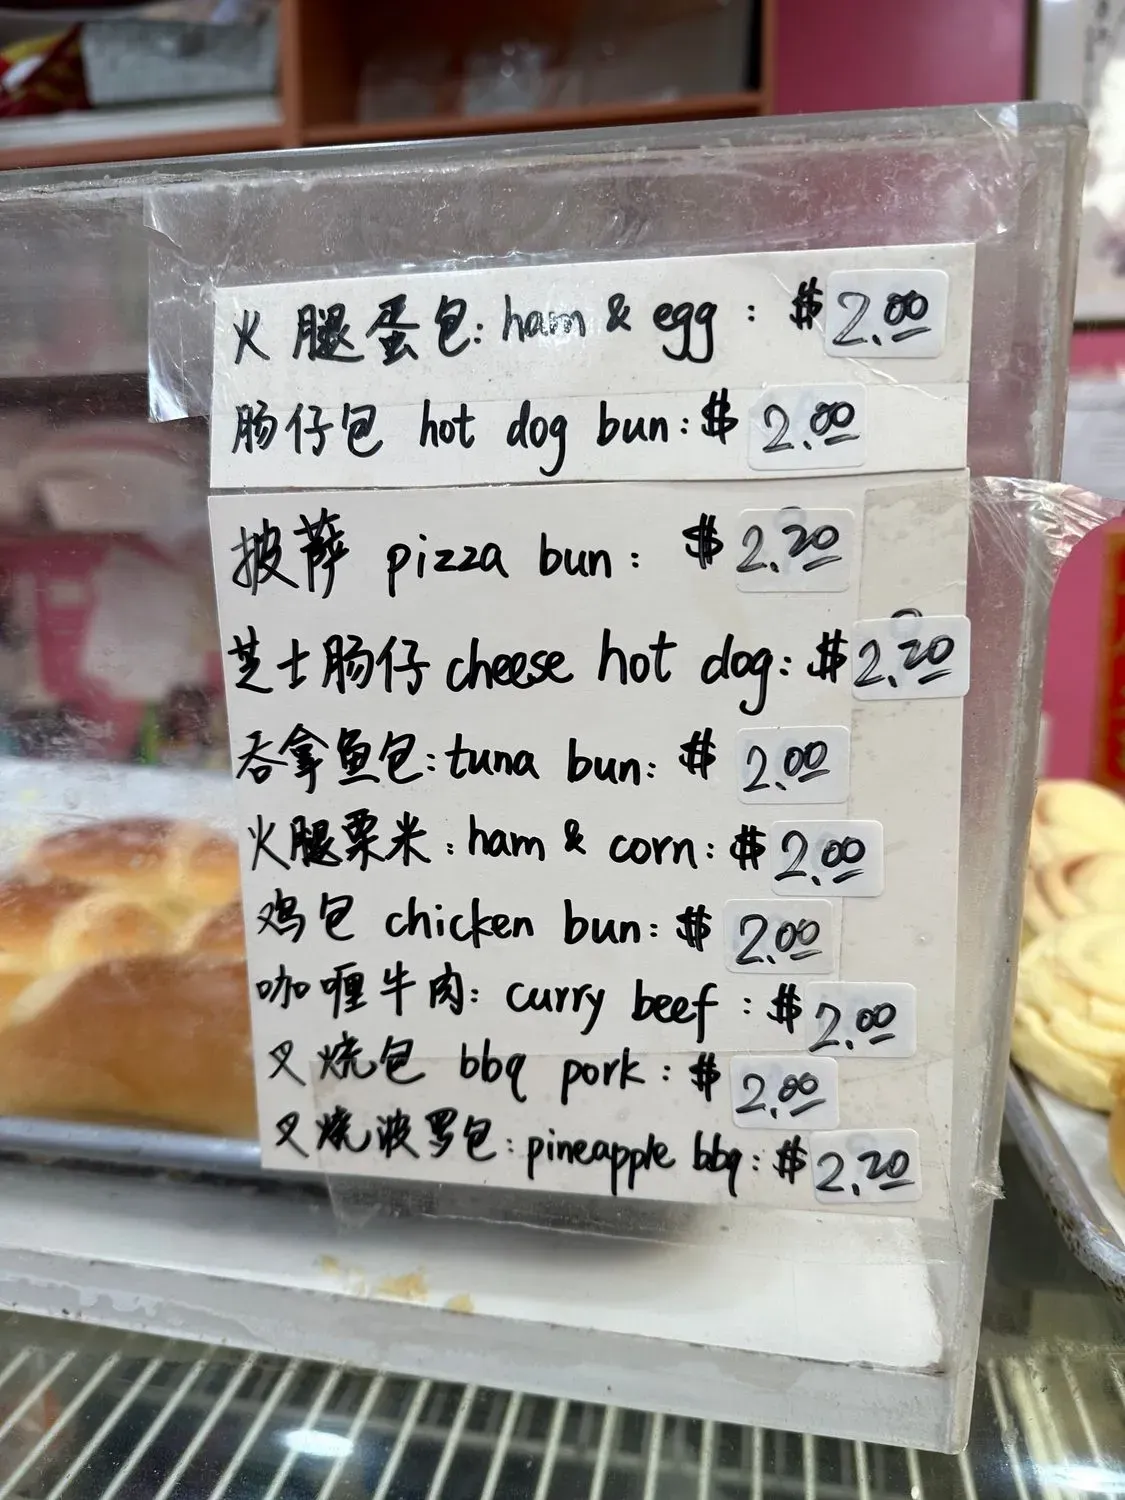 火腿蛋包: ham & egg : $2.00
肠仔包 hot dog bun: $2.00
披萨 pizza bun: $2.20
芝士肠仔 cheese hot dog: $2.20
吞拿鱼包: tuna bun: $2.00
火腿栗米: ham & corn: $2.00
鸡包 chicken bun: $2.00
咖喱牛肉: curry beef : $2.00
叉烧包 bbq pork: $2.00
叉烧波罗包: pineapple bbq: $2.20